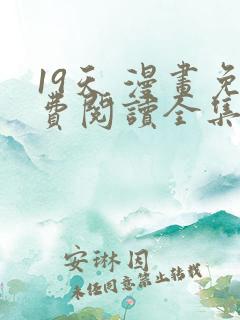 19天 漫畫免
費閱讀全集
安琳因
未经同意禁止转载